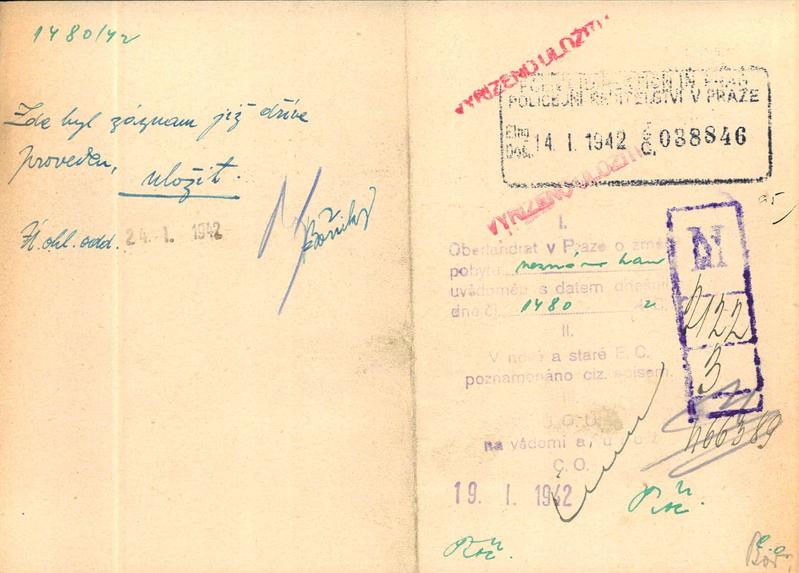 1480/42
Zde byl záznam již dříve
proveden, uložit.
Ú. ohl. odd. 24. I. 1942
VYŘÍZENO ULOŽITI
POLICEJNÍ ŘEDITELSTVÍ V PRAZE
Došl. 14. I. 1942 Č. 038846
VYŘÍZENO ULOŽITI
I.
Oberlandrat v Praze o změně
pobytu neznámo kam
uvědoměn s datem dnešním
dne čj. 1480
II.
V nové a staré E. C.
poznamenáno ciz. spisem.
III.
na vědomí a
Č. O.
19. I. 1942
N
2122
3
466389